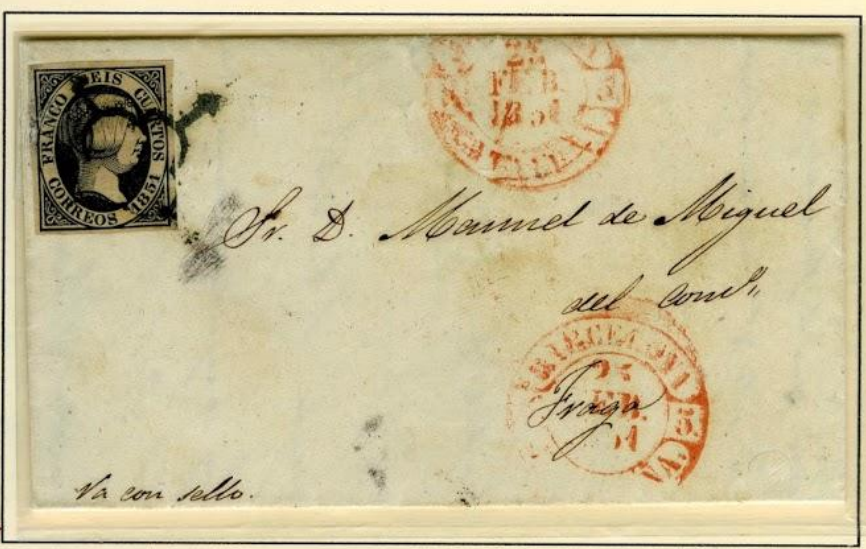 FRANCO SEIS CUARTOS
CORREOS 1851
25
FEB
1851
Sr. D. Manuel de Miguel
del Comº
BARCELONA
25
FEB.
51
Fraga
Va con sello.